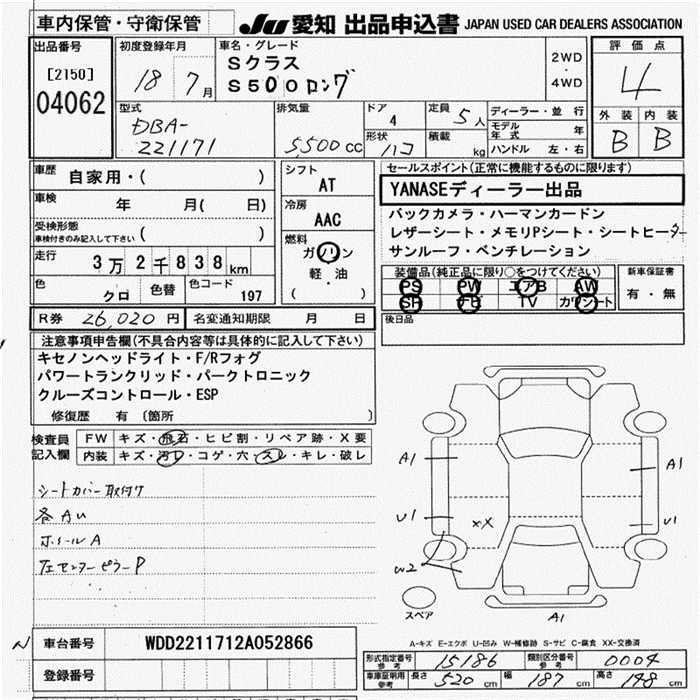 車内保管・守衛保管
JU 愛知 出品申込書 JAPAN USED CAR DEALERS ASSOCIATION
出品番号
[2150]
04062
初度登録年月
18 7月
車名・グレード
Sクラス
S500ロング
2WD
・
4WD
評価点
4
外装 内装
B B
型式
DBA-
221171
排気量
5,500cc
ドア
4
形状 ハコ
定員 5人
積載 kg
ディーラー・並行
モデル年式 年
ハンドル 左・右
車歴 自家用・( )
車検 年 月( 日)
受検形態
車検付きのみ記入して下さい ( )
走行 3万2千838km
色 クロ 色替 色コード 197
シフト
AT
冷房
AAC
燃料
ガソリン
軽・油
( )
セールスポイント(正常に機能するものに限ります)
YANASEディーラー出品
バックカメラ・ハーマンカードン
レザーシート・メモリPシート・シートヒーター
サンルーフ・ベンチレーション
装備品(純正品に限り○をつけてください)
PS PW エアB AW
SR ナビ TV カワシート
新車保証書
有・無
後日品
R券 26,020円 名変通知期限 月 日
注意事項申告欄(不具合内容等は具体的に記入して下さい)
キセノンヘッドライト・F/Rフォグ
パワートランクリッド・パークトロニック
クルーズコントロール・ESP
修復歴 有〔箇所 〕
検査員記入欄
FW キズ・飛石・ヒビ割・リペア跡・X要
内装 キズ・汚レ・コゲ・穴・スレ・キレ・破レ
シートカバー取付ケ
各AU
ホイールA
左センターピラーP
A1
A1
U1
XX
U1
W2
スペア
A1
A-キズ E-エクボ U-凹み W-補修跡 S-サビ C-腐食 XX-交換済
車台番号 WDD2211712A052866
登録番号
形式指定番号参考 15186 類別区分番号参考 0004
車庫証明用参考 長さ 520cm 幅 187cm 高さ 148cm